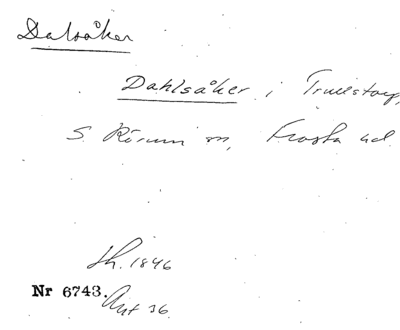 Dalsåker
Dahlsåker i Trulstorp,
S. Rörum sn, Frosta hd.
Lh. 1846
Nr 6743. Avt 36.